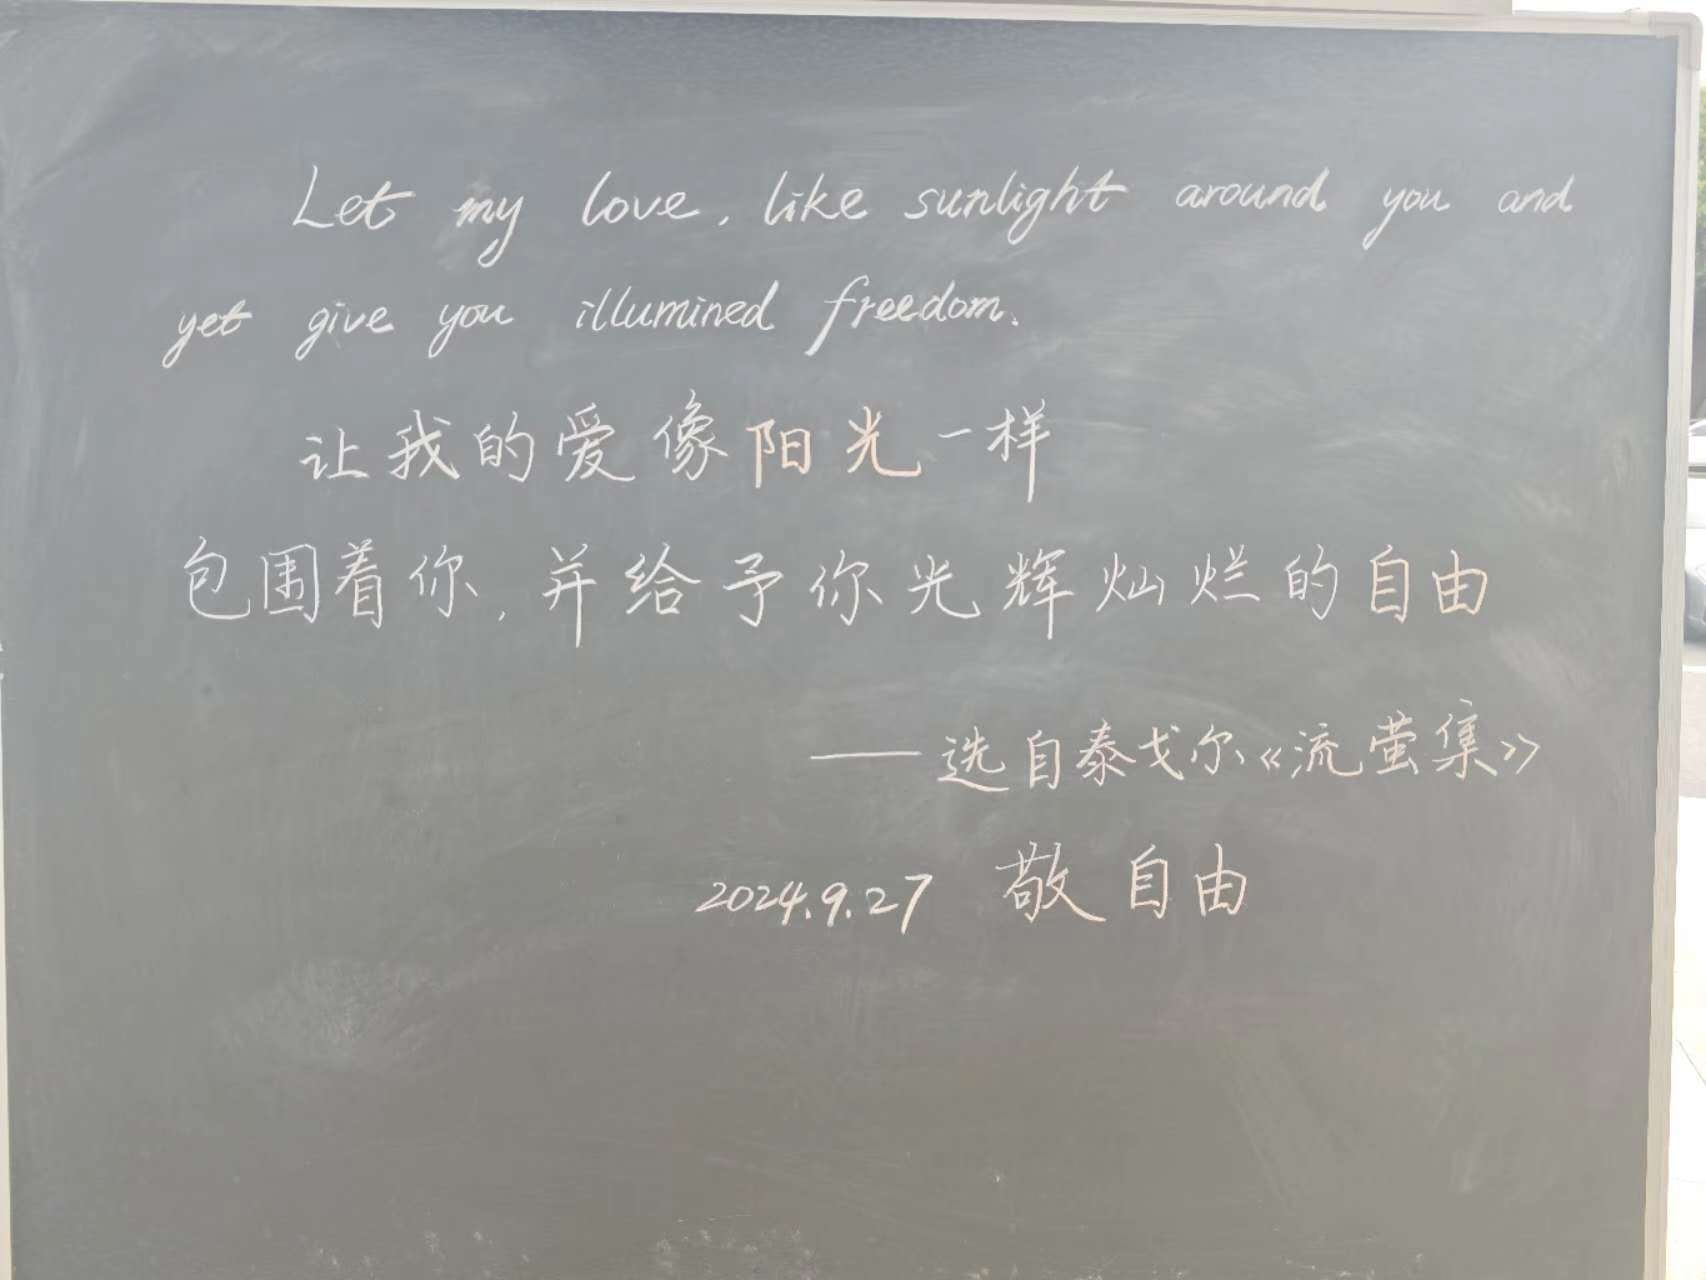 Let my love, like sunlight around you and
yet give you illumined freedom.
让我的爱像阳光一样
包围着你,并给予你光辉灿烂的自由
——选自泰戈尔《流萤集》
2024.9.27 敬自由